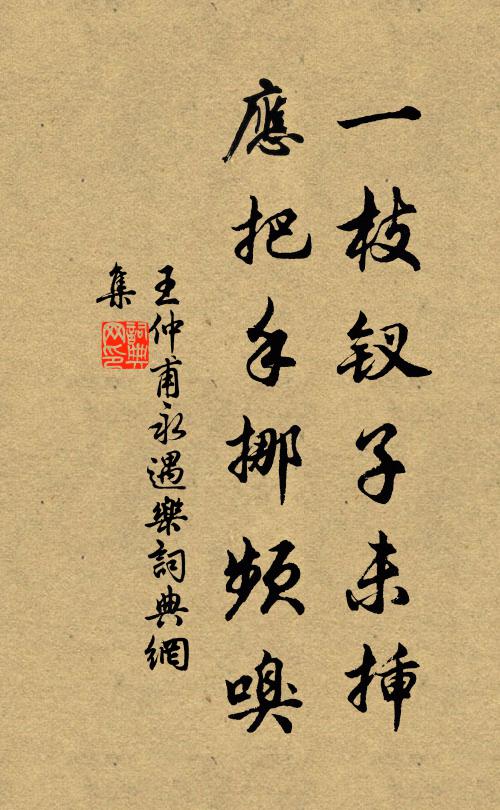 一枝釵子未插
應把手挪頻嗅
王仲甫永遇樂詞典網
集
詞典网印